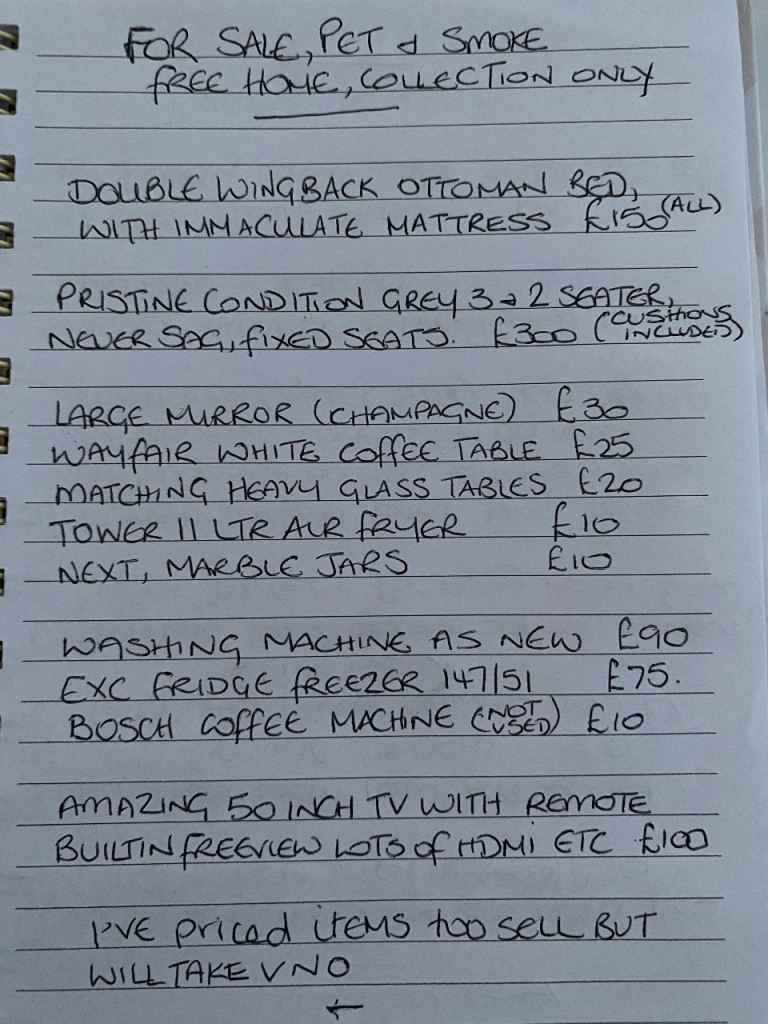 FOR SALE, PET & SMOKE
FREE HOME, COLLECTION ONLY
DOUBLE WINGBACK OTTOMAN BED,
WITH IMMACULATE MATTRESS £150 (ALL)
PRISTINE CONDITION GREY 3 & 2 SEATER,
NEVER SAG, FIXED SEATS. £300 (CUSHIONS INCLUDED)
LARGE MIRROR (CHAMPAGNE) £30
WAYFAIR WHITE COFFEE TABLE £25
MATCHING HEAVY GLASS TABLES £20
TOWER 11 LTR AIR FRYER £10
NEXT, MARBLE JARS £10
WASHING MACHINE AS NEW £90
EXC FRIDGE FREEZER 147/51 £75.
BOSCH COFFEE MACHINE (NOT USED) £10
AMAZING 50 INCH TV WITH REMOTE
BUILTIN FREEVIEW LOTS OF HDMI ETC £100
I'VE priced items too SELL BUT
WILL TAKE VNO
←